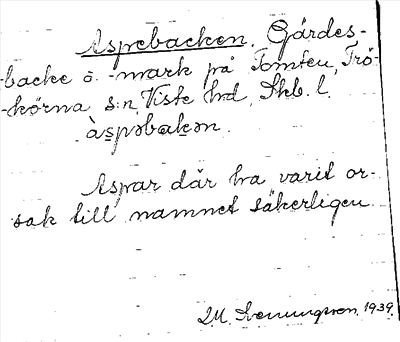 Aspebacken. Gärdes-
backe o. -mark på Tomten, Trö-
-körna s:n, Viste hd, Skb. l.
àspəbakən.
Aspar där ha varit or-
sak till namnet säkerligen.
M. Henningsson. 1939.